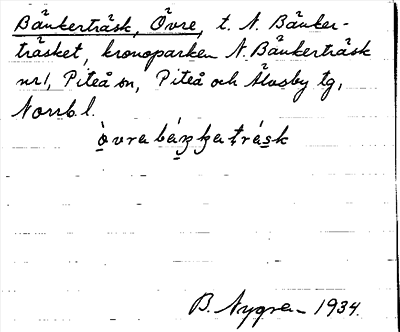 Bänkerträsk, Övre, t. N. Bänker-
träsket, kronoparken N. Bänkerträsk
nr 1, Piteå sn, Piteå och Älvsby tg,
Norrb. l.
B. Nygren 1934.